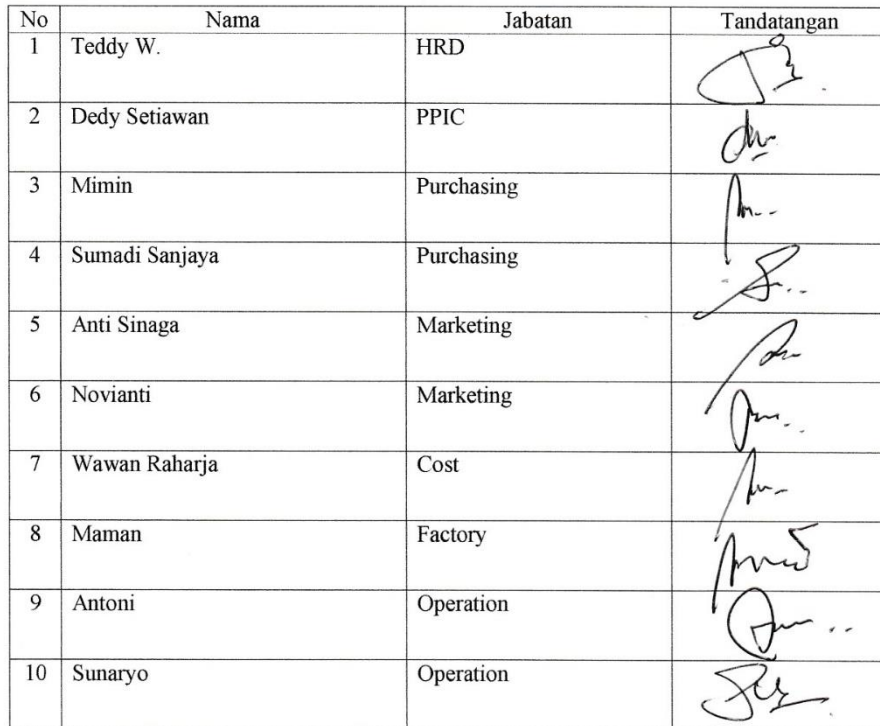 No Nama Jabatan Tandatangan
1 Teddy W. HRD
2 Dedy Setiawan PPIC
3 Mimin Purchasing
4 Sumadi Sanjaya Purchasing
5 Anti Sinaga Marketing
6 Novianti Marketing
7 Wawan Raharja Cost
8 Maman Factory
9 Antoni Operation
10 Sunaryo Operation